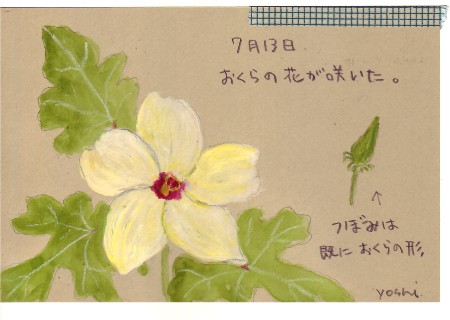 7月13日
おくらの花が咲いた。
↑
つぼみは
既におくらの形。
yoshi